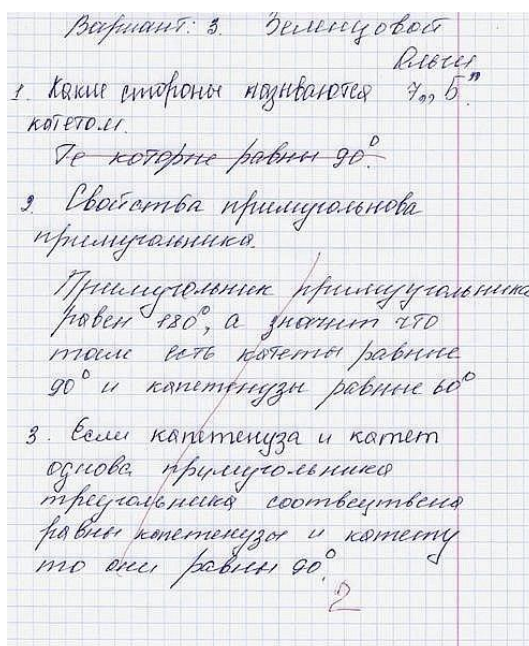 Вариант: 3. Зеленцовой
Ольги
1. Какие стороны называются 7,,Б"
катетом.
Те которые равны 90°.
2. Свойства примуголь­нова
примугольника.
Примугольник примуугольника
равен 180°, а значит что
там есть катеты равные
90° и капетенузы равные 60°
3. Если капетенуза и катет
однова примугольника
треугольника соотвецтвена
равны капетенузы и катету
то они равны 90°.
2